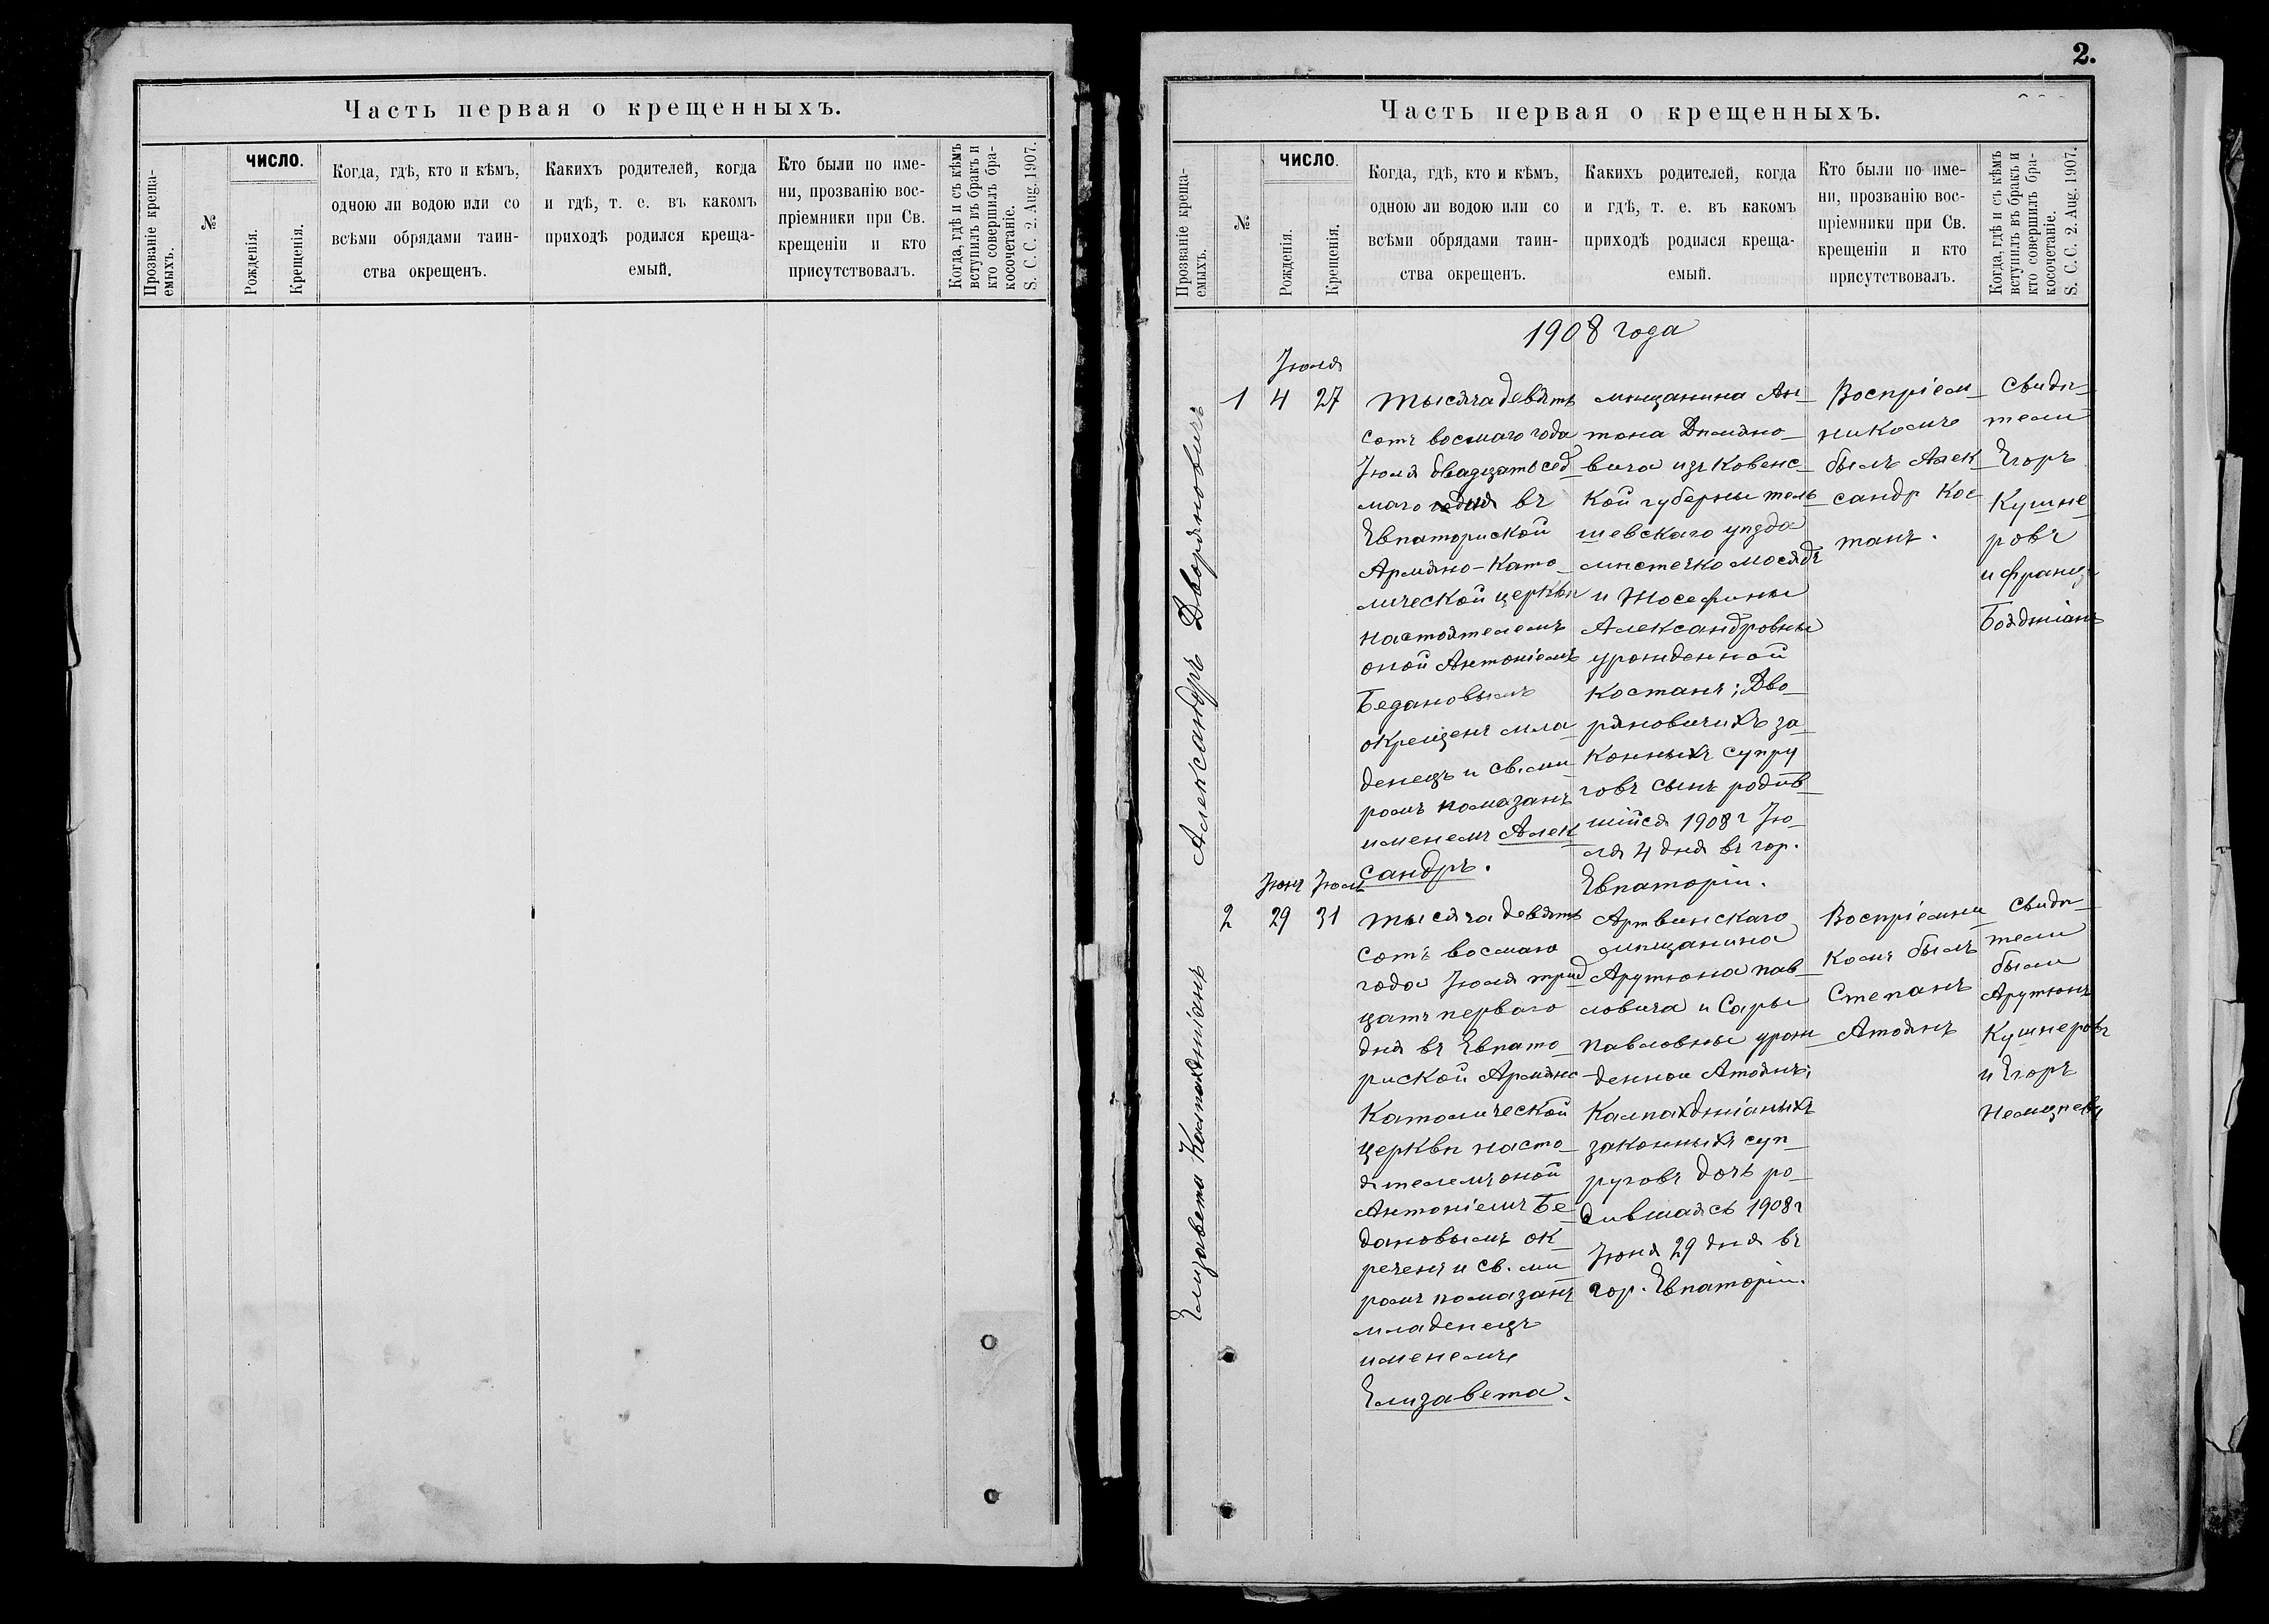 Часть первая о крещенныхъ.
Прозваніе креща-
емыхъ.
№
ЧИСЛО.
Рожденія.
Крещенія.
Когда, гдѣ, кто и кѣмъ,
одною ли водою или со
всѣми обрядами таин-
ства окрещенъ.
Какихъ родителей, когда
и гдѣ, т. е. въ какомъ
приходѣ родился креща-
емый.
Кто были по име-
ни, прозванію вос-
пріемники при Св.
крещеніи и кто
присутствовалъ.
Когда, гдѣ и съ кѣмъ
вступилъ въ бракъ и
кто совершилъ бра-
косочетаніе.
S. C. C. 2. Aug. 1907.
2.
Часть первая о крещенныхъ.
Прозваніе креща-
емыхъ.
№
ЧИСЛО.
Рожденія.
Крещенія.
Когда, гдѣ, кто и кѣмъ,
одною ли водою или со
всѣми обрядами таин-
ства окрещенъ.
Какихъ родителей, когда
и гдѣ, т. е. въ какомъ
приходѣ родился креща-
емый.
Кто были по име-
ни, прозванію вос-
пріемники при Св.
крещеніи и кто
присутствовалъ.
Когда, гдѣ и съ кѣмъ
вступилъ въ бракъ и
кто совершилъ бра-
косочетаніе.
S. C. C. 2. Aug. 1907.
1908 года
Александръ Дворяновичъ
1
Іюля
4 27
тысяча девять
сотъ восмаго года
Іюля двадцать сед
маго дня въ
Евпаториской
Армяно-Като-
лической церкви
настоятелемъ
оной Антоніемъ
Бедановымъ
окрещенъ мла
денецъ и св. ми
ромъ помазанъ
именемъ Алек
сандръ.
мѣщанина Ан-
тона Дмяно-
вича изъ Ковенс-
кой губерны тель
шевскаго уѣзда
мѣстечко мосядъ
и Жосефины
Александровны
урожденной
Костанъ; Дво-
ряновичихъ за-
конныхъ супру
говъ сынъ родив-
шійся 1908 г Ію-
ля 4 дня въ гор.
Евпаторіи.
Воспріем-
никомъ
былъ Алек-
сандр Кос-
танъ.
Свидѣ-
тели
Егоръ
Кушне-
ровъ
и Францъ
Бояджіанъ
Елизавета Калпахджіанъ
2
Іюнь Іюль
29 31
тысяча девять
сотъ восмаго
года Іюля трид
цать перваго
дня въ Евпато-
риской Армяно
Католической
церкви насто-
ятелемъ оной
Антоніемъ Бе-
дановымъ ок-
рещенъ и св. ми
ромъ помазанъ
младенецъ
именемъ
Елизавета.
Артвинскаго
мѣщанина
Арутюна Пав-
ловича и Сары
Павловны урож-
денной Атоянъ;
Калпахджіаныхъ
законныхъ суп-
руговъ дочь ро-
дившаясь 1908 г
Іюня 29 дня въ
гор. Евпаторіи.
Воспріемни-
комъ былъ
Степанъ
Атоянъ
Свидѣ-
тели
были
Арутюнъ
Кушнеровъ
и Егоръ